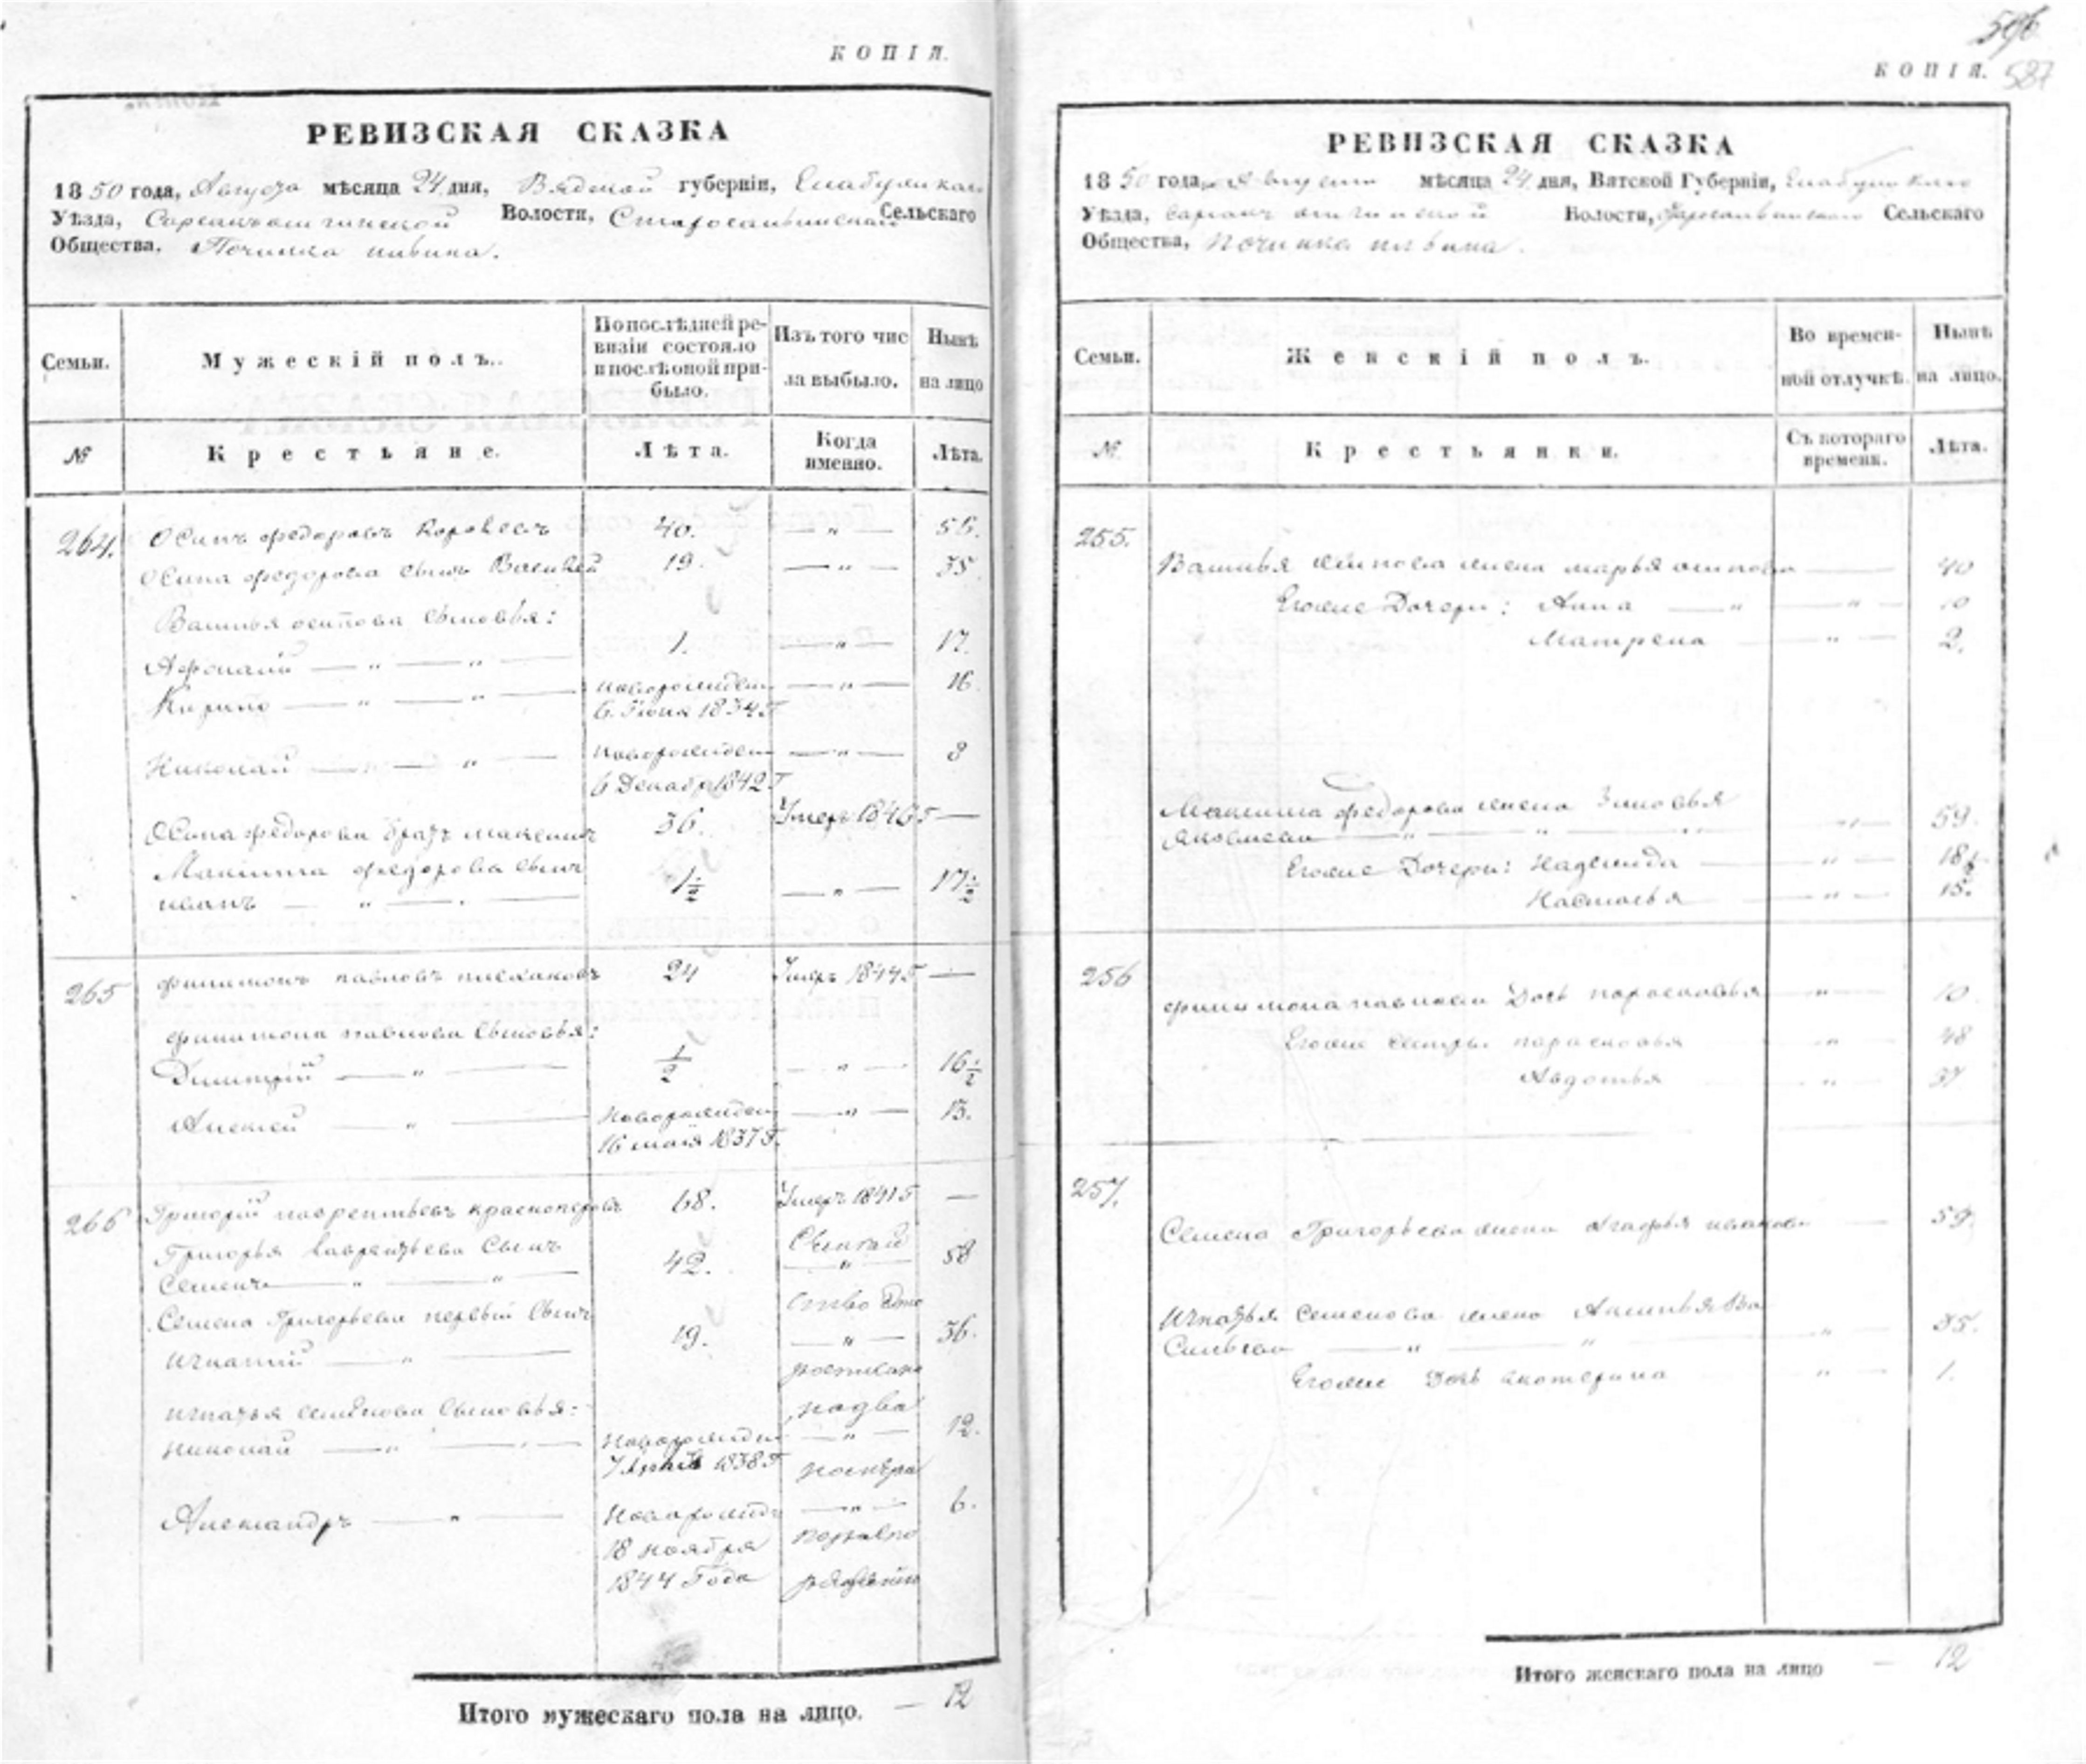 КОПІЯ.
РЕВИЗСКАЯ СКАЗКА
1850 года, Августа мѣсяца 24 дня, Вядской губерніи,
Уѣзда, Волости, Сельскаго
Общества, Починка
Семьи.
Мужескій полъ.
По послѣдней ре-
визіи состояло
и послѣ оной при-
было.
Изъ того чис
ла выбыло.
Нынѣ
на лицо
№
Крестьяне.
Лѣта.
Когда
именно.
Лѣта.
264. Осипъ Федоровъ 40. — „ — 56.
Осипа Федорова сынъ Василей 19. — „ — 35.
Василья осипова сыновья:
Афонасій — „ — „ — 1. — „ — 17.
— „ — „ — новорожден — „ — 16.
6. Іюня 1834 Г
Николай — „ — новорожден — „ — 8
6 Декабр 1842 Г
Осипа Федорова братъ максимъ 36. Умеръ 1846 Г —
Максима Федорова сынъ
иванъ — „ — 1½ — „ — 17½
265 филимонъ павловъ плехановъ 24 Умеръ 1844 Г —
филимона павлова сыновья:
Димитрій — „ — ½ — „ — 16½
Алексей — „ — Новорожден — „ — 13.
16 маія 1837 Г.
266 Григорій лаврентьевъ красноперовъ 68. Умеръ 1841 Г —
Григорья лаврентьева сынъ
Семенъ — „ — „ — 42. — „ — 58
Семена Григорьева первый сынъ
Игнатій — „ — 19. — „ — 36.
росписано
Игнатья семёнова сыновья: на два
николай — „ — Новорожден — „ — 12.
1838 Г номера
Александръ — „ — Новорожд — „ — 6.
18 ноября
1844 Года
Итого мужескаго пола на лицо. — 12
596
587
КОПІЯ.
РЕВИЗСКАЯ СКАЗКА
1850 года, Августа мѣсяца 24 дня, Вятской Губерніи,
Уѣзда, Волости, Сельскаго
Общества, Починка
Семьи.
Женскій полъ.
Во времен-
ной отлучкѣ.
Нынѣ
на лицо.
№
Крестьянки.
Съ котораго
времени.
Лѣта.
255.
Василья осипова жена марья осипова — 40
Егоже Дочери: Анна — „ — „ — 10
Матрена — „ — 2.
Максима Федорова жена Зиновья
Яковлева — „ — „ — „ — 59.
Егоже Дочери: Надежида — „ — 18½
Настасья — „ — 15.
256
филимона павлова Дочь парасковья — „ — 10
Егоже сестры парасковья — „ — 48
Авдотья — „ — 37
257.
Семена Григорьева жена Агафья иванова — 59.
Игнатья Семенова жена Акилина Ва
сильева — „ — „ — „ 35.
Егоже Дочь екатерина — „ — 1.
Итого женскаго пола на лицо — 12